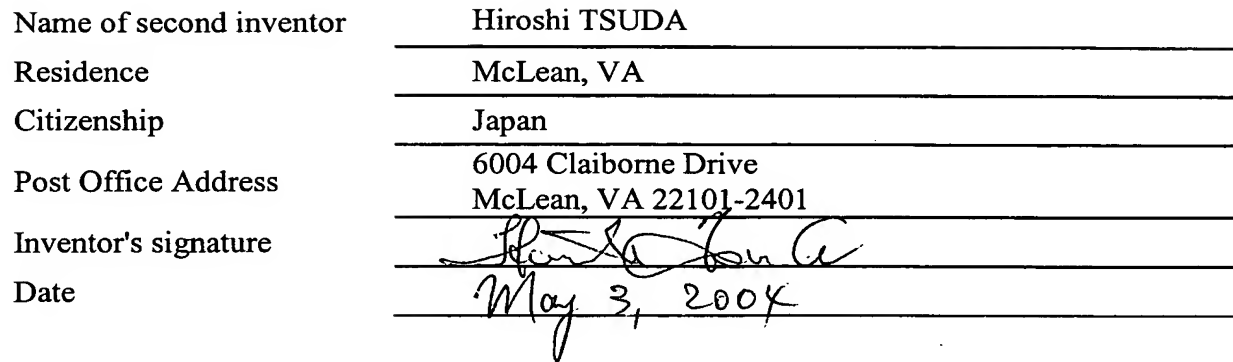 Name of second inventor Hiroshi TSUDA
Residence McLean, VA
Citizenship Japan
Post Office Address 6004 Claiborne Drive
McLean, VA 22101-2401
Inventor's signature
Date May 3, 2004